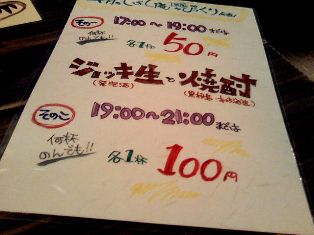 その一 17:00〜19:00まで
何杯のんでも!!
各1杯 50円
ジョッキ生と焼酎
(発泡酒)
その二 19:00〜21:00まで
何杯のんでも!!
各1杯 100円